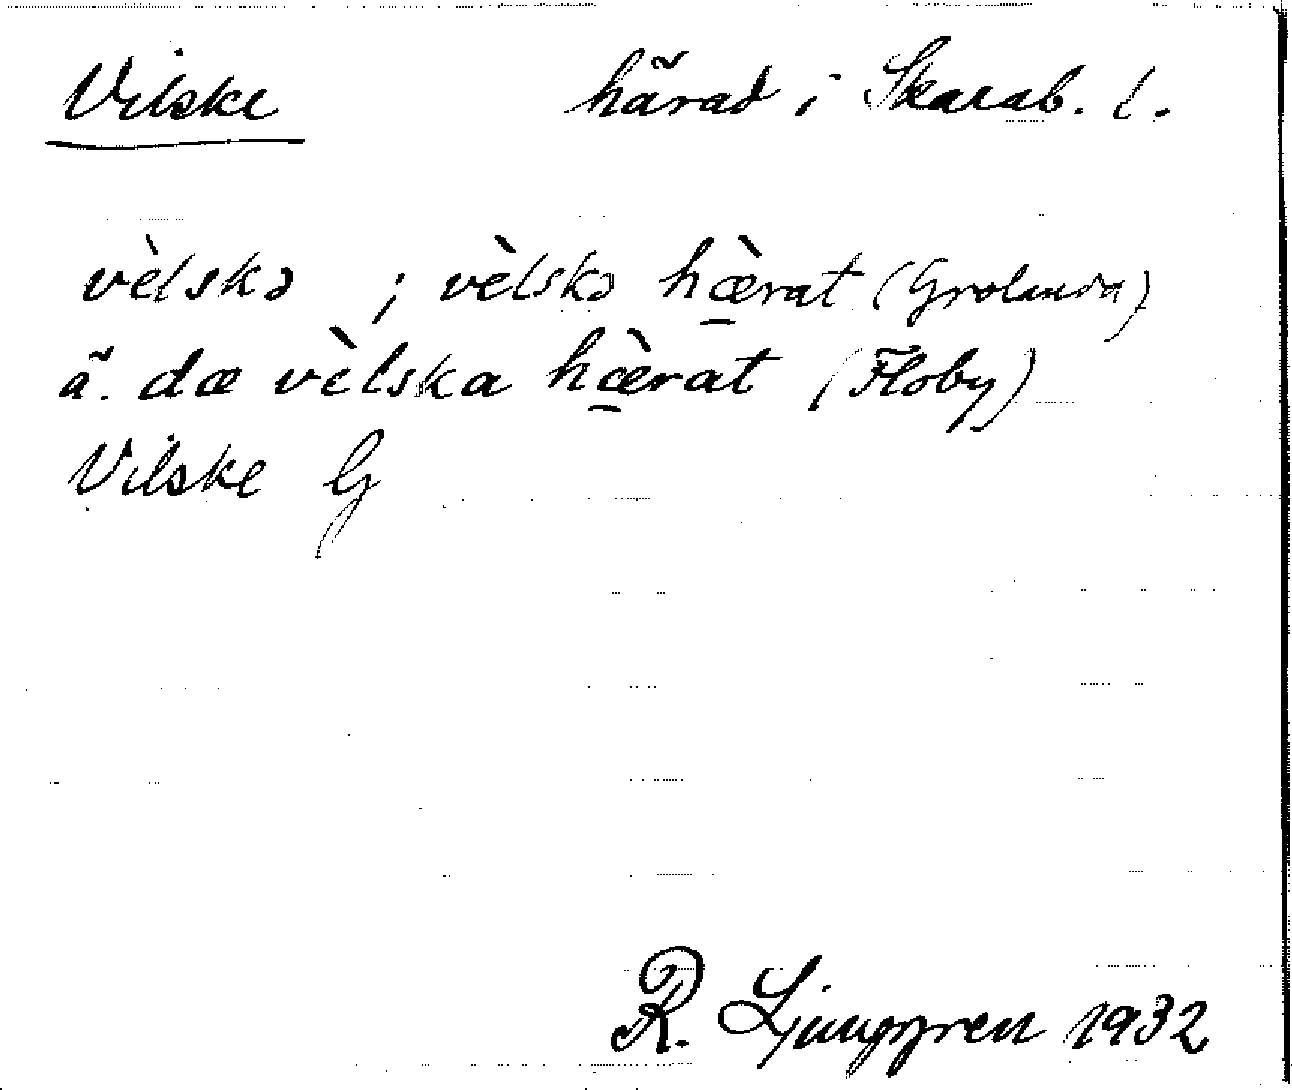 Vilske härad i Skarab. l.
vèlskə ; vèlskə hæ̲̀rat (Grolanda)
ä. dæ vèlska hæ̲̀rat (Floby)
Vilske G
R. Ljunggren 1932